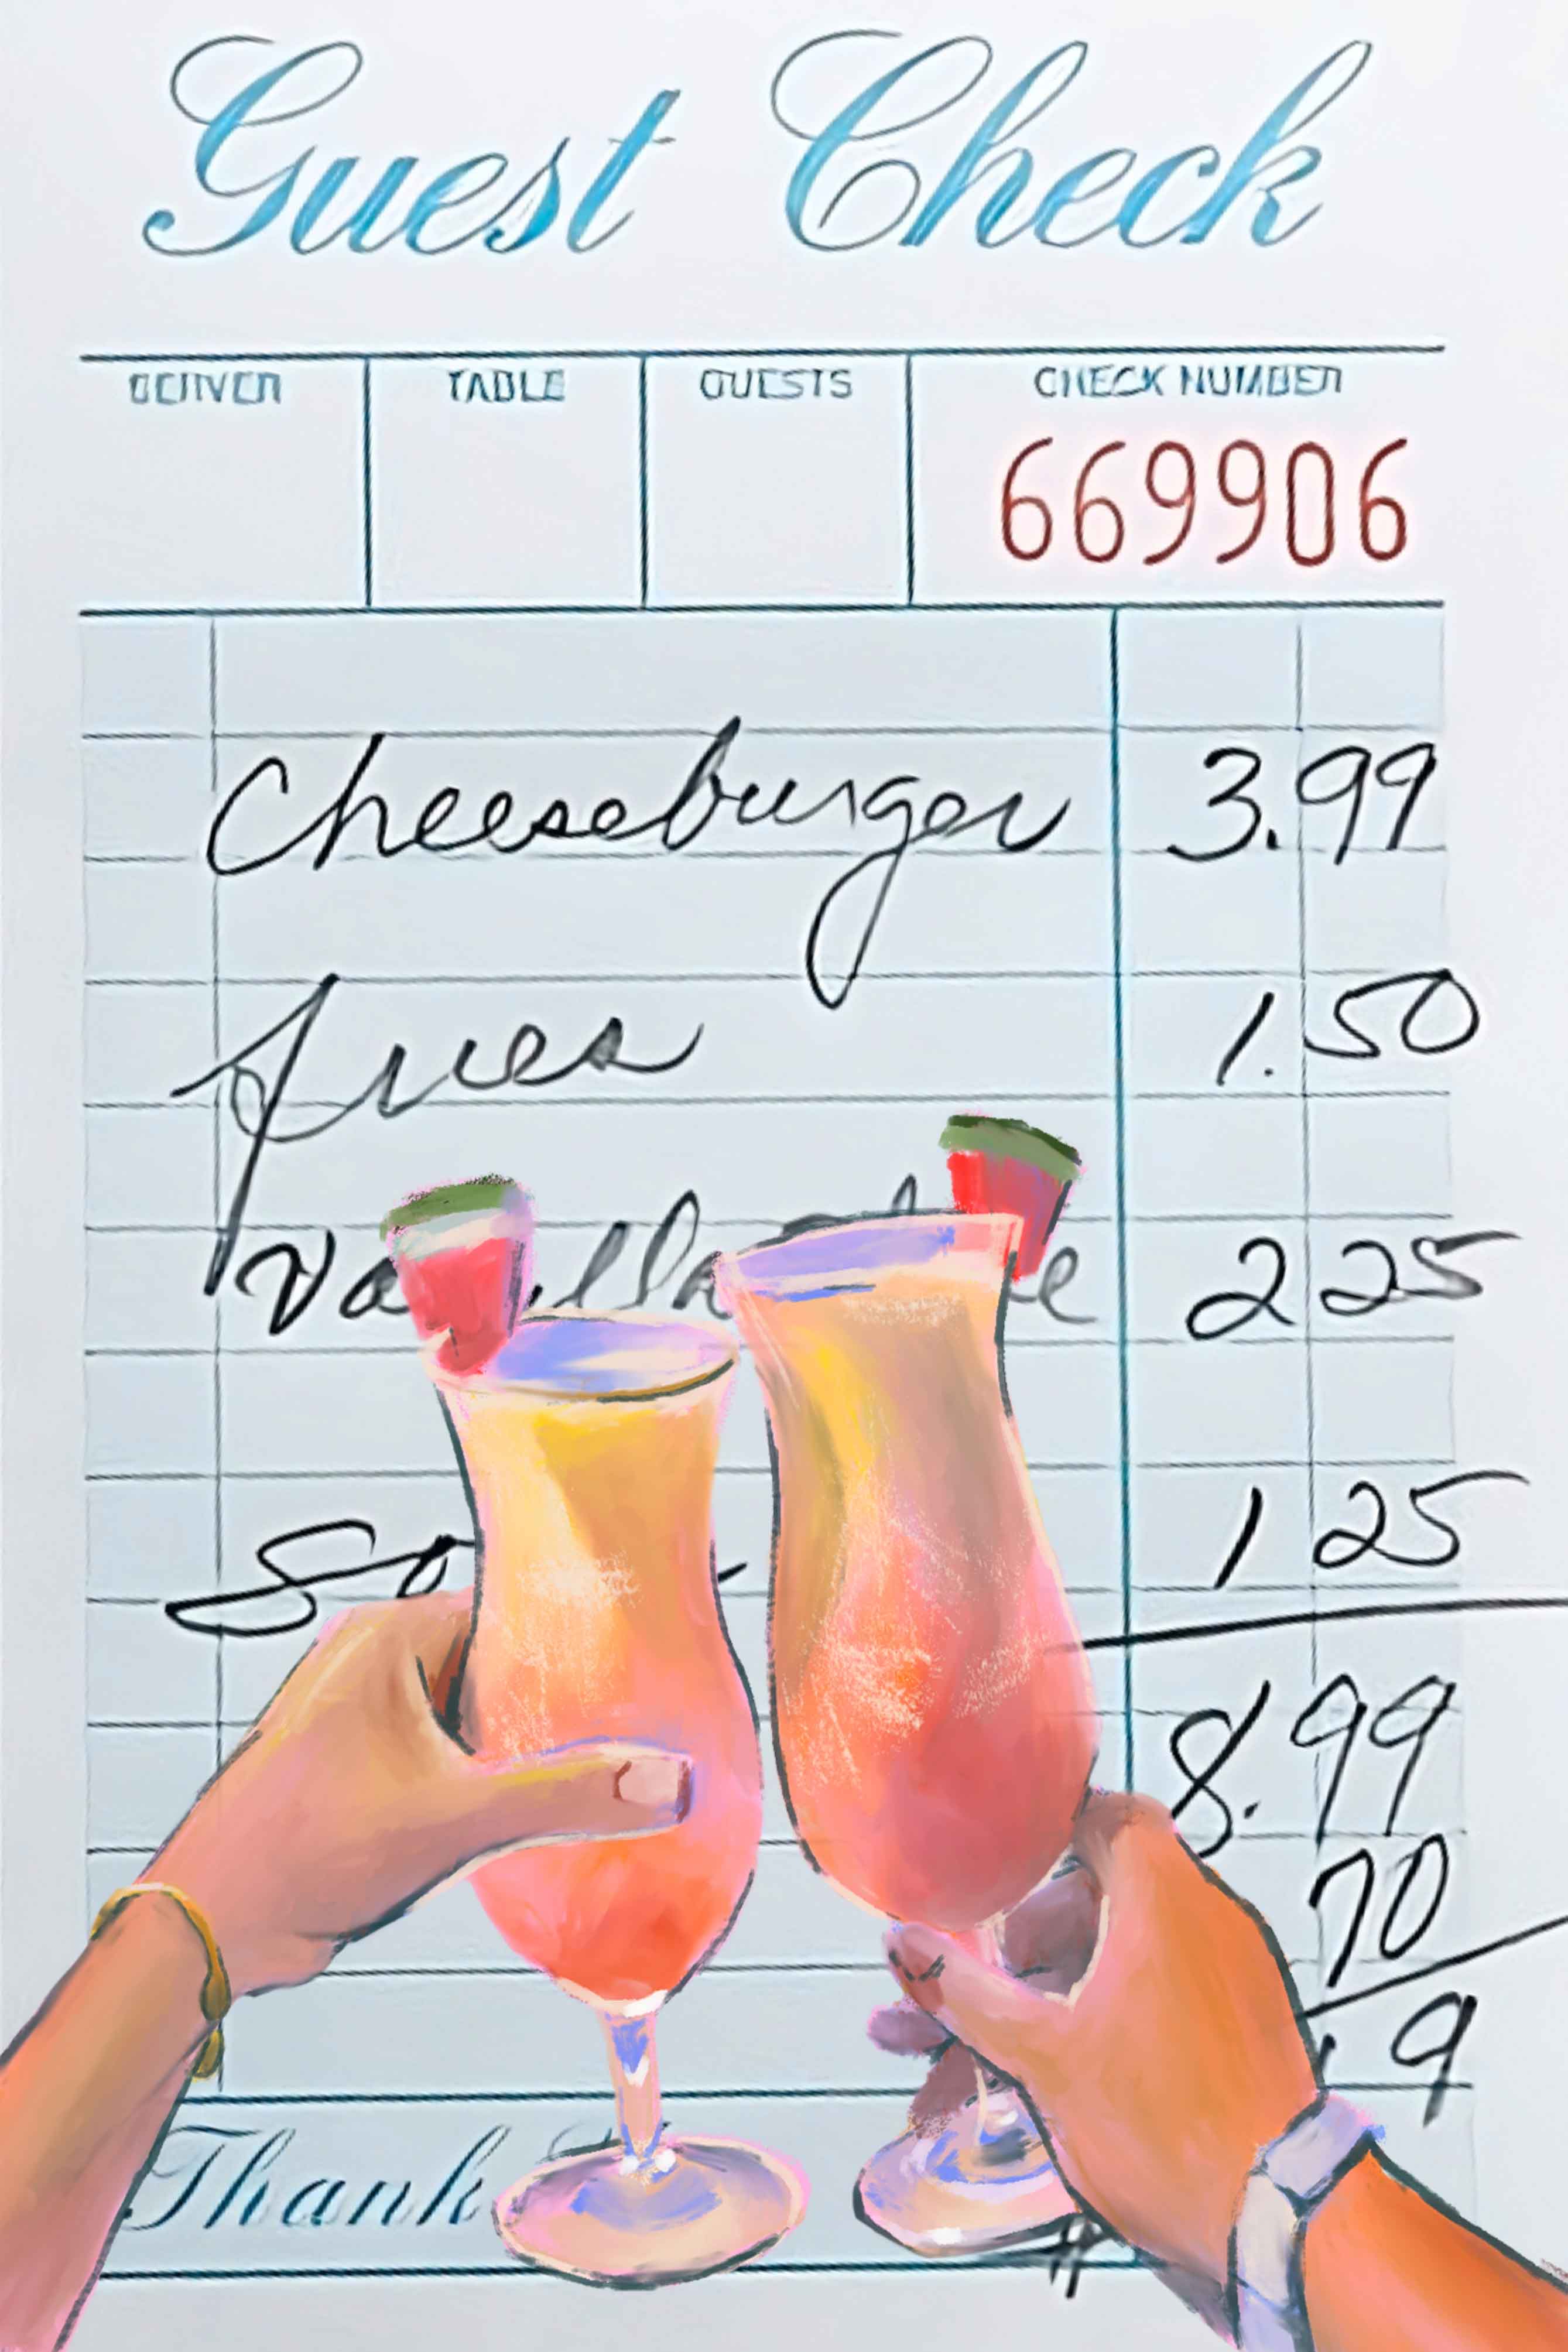 Guest Check
SERVER TABLE GUESTS CHECK NUMBER
669906
Cheeseburger 3.99
fries 1.50
2 25
1 25
8.99
70
9
Thank